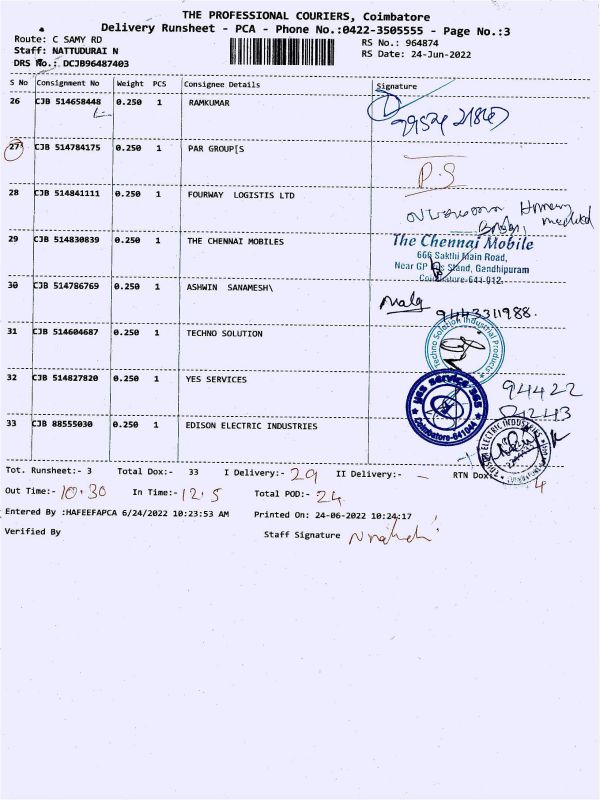 THE PROFESSIONAL COURIERS, Coimbatore
Delivery Runsheet - PCA - Phone No.:0422-3505555 - Page No.:3
Route: C SAMY RD
RS No.: 964874
Staff: NATTUDURAI N
RS Date: 24-Jun-2022
DRS No.: DCJB96487403
S No Consignment No Weight PCS Consignee Details Signature
26 CJB 514658448 0.250 1 RAMKUMAR
27 CJB 514784175 0.250 1 PAR GROUP[S
P.S
28 CJB 514841111 0.250 1 FOURWAY LOGISTIS LTD
29 CJB 514830839 0.250 1 THE CHENNAI MOBILES
The Chennai Mobile
666 Sakthi Main Road,
Near GP Stand, Gandhipuram
Coimbatore-641 012.
30 CJB 514786769 0.250 1 ASHWIN SANAMESH\
9443311988.
31 CJB 514604687 0.250 1 TECHNO SOLUTION
Techno Solution Industrial Products
32 CJB 514827820 0.250 1 YES SERVICES
yes service 365
Coimbatore-641044
94422
33 CJB 88555030 0.250 1 EDISON ELECTRIC INDUSTRIES
ELECTRIC INDUSTRIES
Tot. Runsheet:- 3 Total Dox:- 33 I Delivery:- 29 II Delivery:- - RTN Dox:- 4
Out Time:- 10.30 In Time:- 12.5 Total POD:- 24
Entered By :HAFEEFAPCA 6/24/2022 10:23:53 AM Printed On: 24-06-2022 10:24:17
Verified By Staff Signature